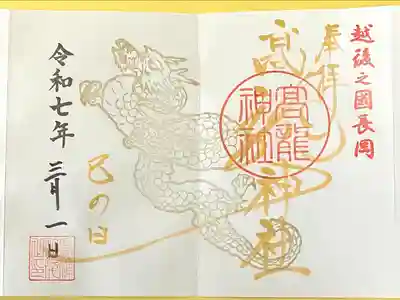 越後之國長岡
奉拝
高龍神社
高龍神社
巳の日
令和七年 三月一日